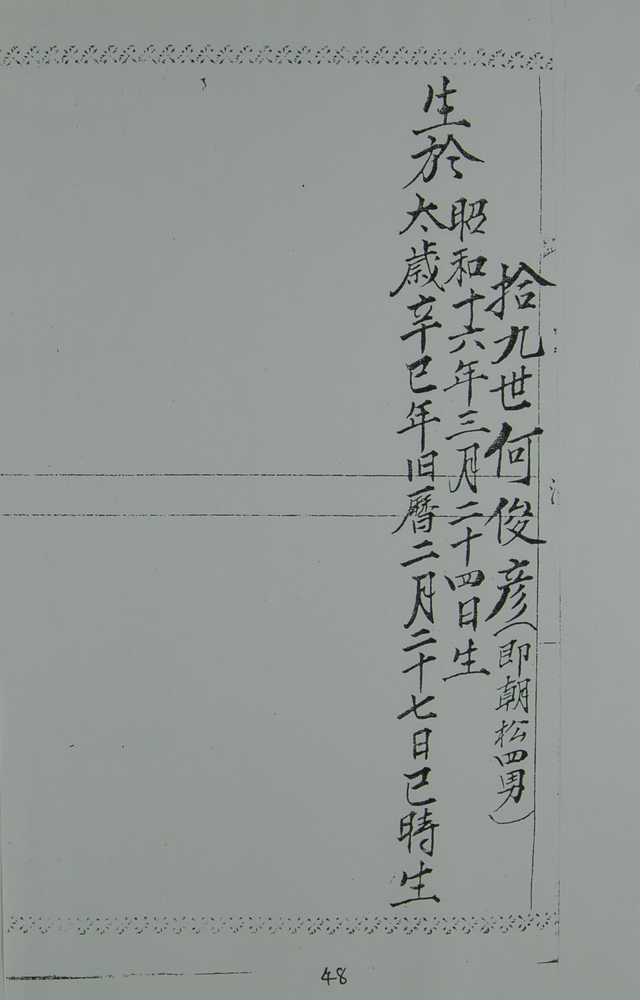 拾九世何俊彦(即朝松四男)
昭和十六年三月二十四日生
生於太歲辛巳年旧曆二月二十七日巳時生
48